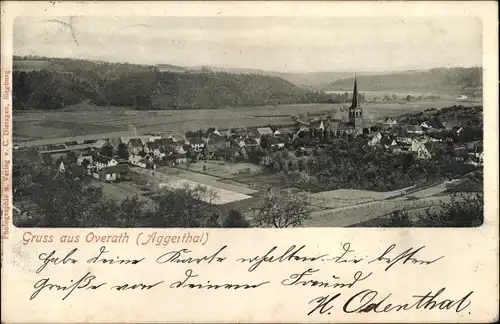 Photographie u. Verlag v. C. Dierzagen, Siegburg.
Gruss aus Overath (Aggerthal)
Habe deine Karte erhalten Freund die besten
grüße von deinem
H. Odenthal.